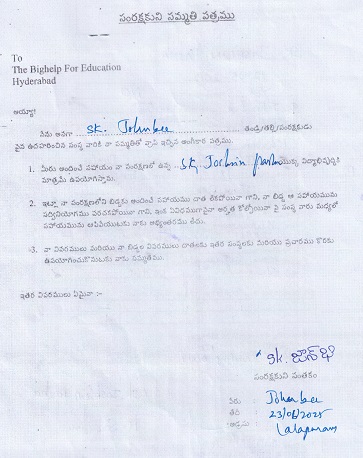 సంరక్షకుని సమ్మతి పత్రము
To
The Bighelp For Education
Hyderabad
అయ్యా!
నేను అనగా Sk. Johnbee తండ్రి/తల్లి/సంరక్షకుడు
పైన ఉదహరించిన సంస్థ వారికి నా సమ్మతితో వ్రాసి ఇచ్చిన అంగీకార పత్రము.
1. మీరు అందించే సహాయం నా సంరక్షణలో ఉన్న Sk, యొక్క విద్యాభివృద్ధికి
మాత్రమే ఉపయోగిస్తాను.
2. ఇట్లా నా సంరక్షణలోని బిడ్డకు అందించే సహాయము చాలక లేకపోయినా గాని, నా బిడ్డ ఆ సహాయమును
సద్వినియోగము పరచకపోయినా గాని, ఇంక ఏవిధముగానైనా అర్హత కోల్పోయినా పై సంస్థ వారు మధ్యలో
సహాయమును ఆపివేయుటకు నాకు అభ్యంతరము లేదు.
3. నా వివరములు మరియు నా బిడ్డల వివరములు ఇతర సంస్థలకు మరియు ప్రచారము కొరకు
ఉపయోగించుకొనుటకు నాకు సమ్మతమే.
ఇతర వివరములు ఏమైనా :-
sk. జాన్ బి
సంరక్షకుని సంతకం
పేరు : Johnbee
తేది : 23/06/2025
అడ్రసు : Lalapuram